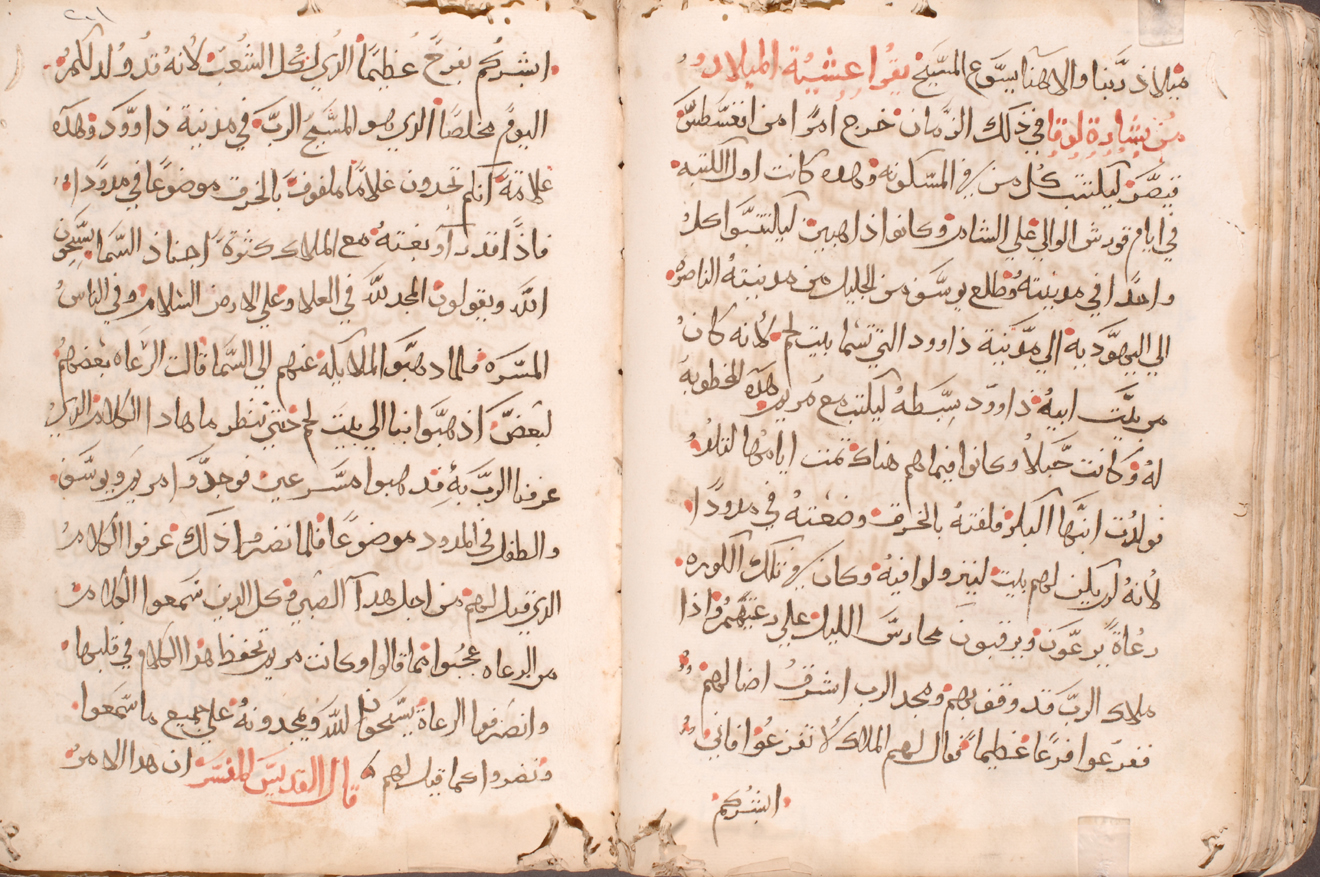 ميلاد ربنا والاهنا يسوع المسيح يقرا عشية الميلاد
من بشارة لوقا في ذلك الزمان خرج امرًا من اغسطس
قيصر ليكتتب كل من في المسكونه وهده كانت اول الكتبه
في ايام قورش الوالي علي الشام وكانوا ذاهبين ليكتتبوا كل
واحدًا في مدينته وطلع يوسف من الجليل من مدينته الناصره
الي اليهودية الي مدينة داوود التي تسما بيت لحم لانه كان
من بيت ابيه داوود بسطه ليكتب مع مريم هده المخطوبه
له وكانت حبلا وكانوا فيما هم هناك تمت ايامها لتلد
فولدت ابنها البكر فلفته بالخرق وضعته في مدودًا
لانه لم يكن لهم بيت لينزولوا فيه وكان في تلك الكوره
رعاة يرعون ويرقبون محارس الليل علي رعيتهم واذا
ملاك الرب قد وقف بهم ومجد الرب اشرف اضا لهم
ففزعوا فزعًا عظيما فقال لهم الملاك لا تفزعوا فاني
ابشركم
ابشركم بفرح عظيما الذي لكل الشعب لانه قد ولد لكم
اليوم مخلصًا الذي هو المسيح الرب في مدينة داوود وهده
علامة انكم تجدون غلامًا ملفوف بالخرق موضوعًا في مدودا
فاذا قد بغته مع الملاك كثرة اجناد السما يسبحون
الله ويقولون المجد لله في العلا وعلي الارض السلام وفي الناس
المسره فلما دهبوا الملايكه عنهم الي السما قالت الرعاه بعضهم
لبعض اذهبوا بنا الي بيت لحم حتي ننظر ما هادا الكلام الذي
عرفنا الرب به قد هبوا مسرعين فوجدوا مريم ويوسف
والطفل في المدود موضوعًا فلما نضروا ذلك عرفوا الكلام
الذي قيل لهم من اجل هدا الصبي وكل الدين سمعوا الكلام
من الرعاه عجبوا مما قالوا وكانت مريم تحفظ هذا الكلام في قلبها
وانضرفوا الرعاة يسبحون لله ويمجدونه علي جميع ما سمعوا
ونضروا كما قيل لهم قال القديس المفسر ان هدا الامر